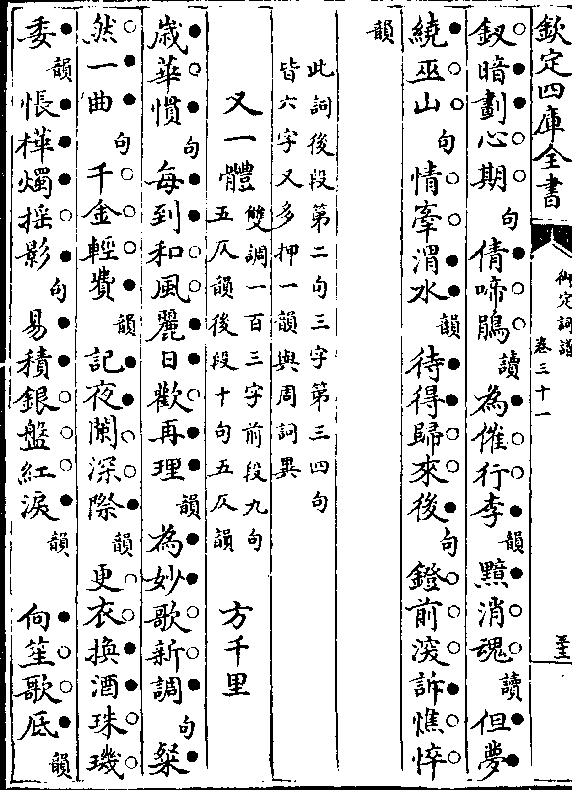 欽定四庫全書
御定詞譜
卷三十一
釵暗劃心期句倩啼鵑讀為催行李韻黯消魂讀但夢
繞巫山句情牽渭水韻待得歸來後句鐙前深訴憔悴
韻
此詞後段第二句三字第三四句
皆六字又多押一韻與周詞異
又一體雙調一百三字前段九句
五仄韻後段十句五仄韻
方千里
歲華慣句每到和風麗日歡再理韻為妙歌新調句粲
然一曲句千金輕費韻記夜闌深際韻更衣換酒珠璣
委韻悵樺燭搖影句易積銀盤紅淚韻 向笙歌底韻